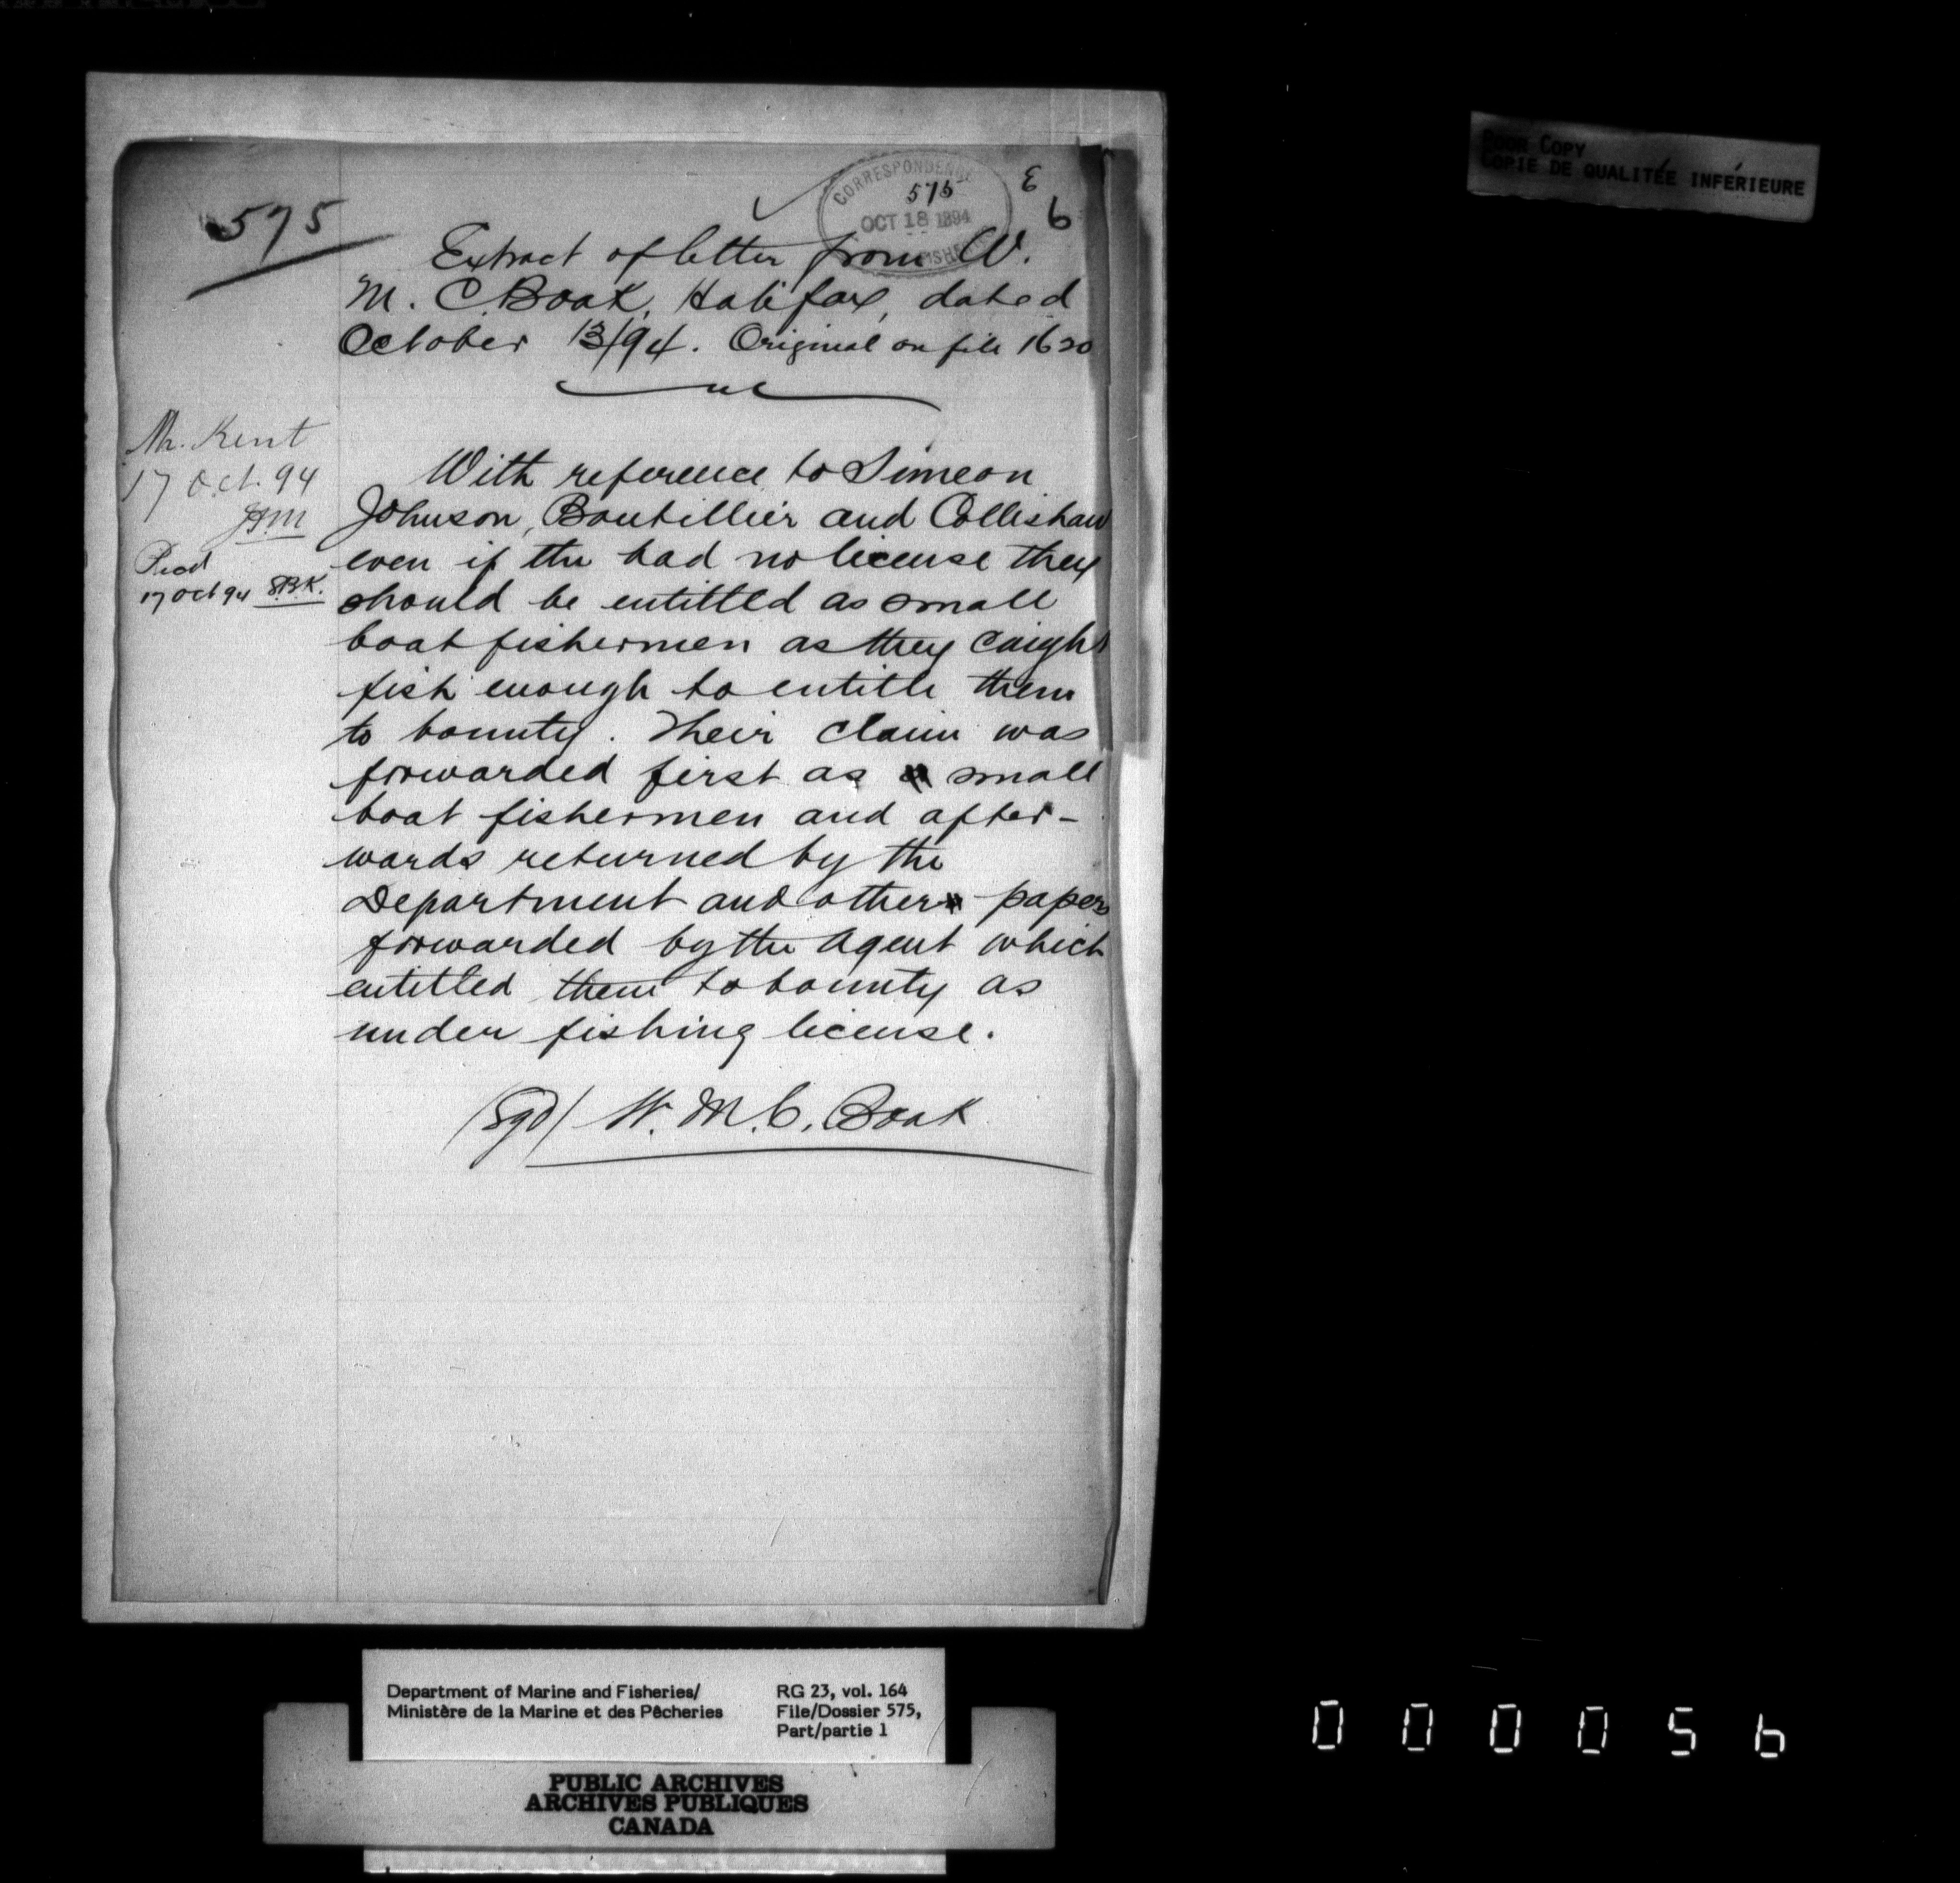 POOR COPY
COPIE DE QUALITÉE INFÉRIEURE
575
CORRESPONDENCE
575
OCT 18 1894
E
6
Extract of letter from W.
M. C. Boak, Halifax, dated
October 13/94. Original on file 1620
Mr. Kent
17 Oct. 94
17 Oct 94 S.B.K.
With reference to Simeon
Johnson, Boutillier and Collishaw
even if the had no license they
should be entitled as small
boat fishermen as they caught
fish enough to entitle them
to bounty. Their claim was
forwarded first as small
boat fishermen and after-
wards returned by the
Department and other papers
forwarded by the Agent which
entitled them to bounty as
under fishing license.
(Sgd) W. M. C. Boak
Department of Marine and Fisheries/
Ministère de la Marine et des Pêcheries
RG 23, vol. 164
File/Dossier 575,
Part/partie 1
PUBLIC ARCHIVES
ARCHIVES PUBLIQUES
CANADA
000056